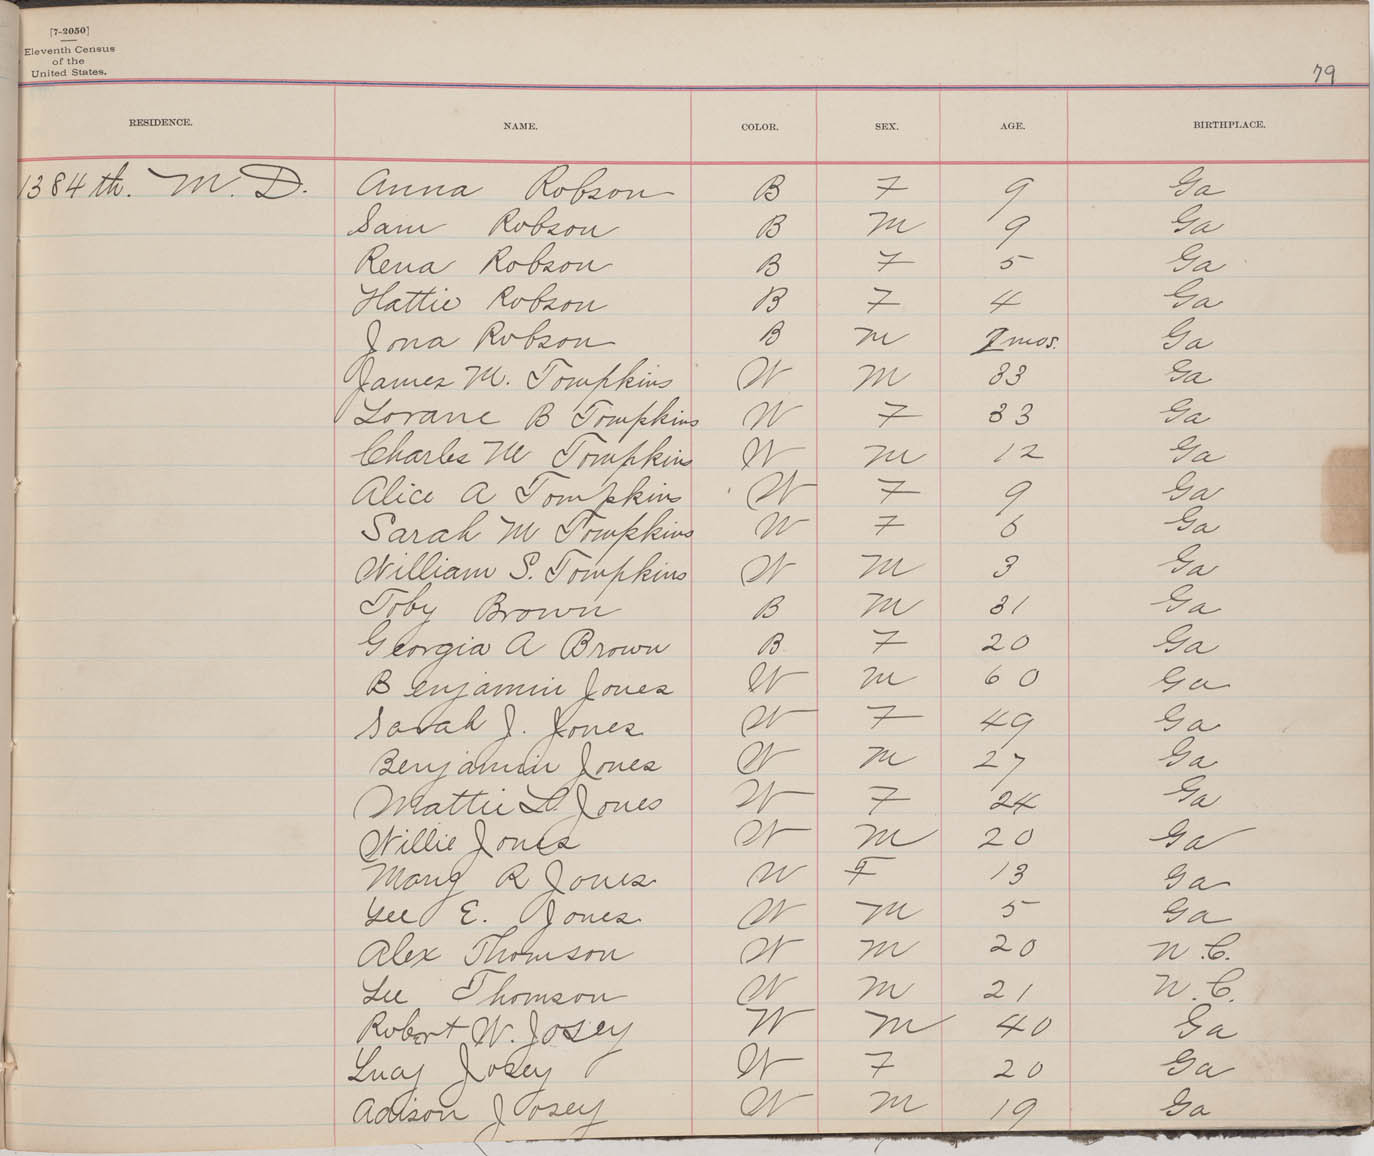 [7-2050]
Eleventh Census
of the
United States.
79
RESIDENCE. NAME. COLOR. SEX. AGE. BIRTHPLACE.
1384th. M. D. Anna Robson B F 9 Ga
Sam Robson B M 9 Ga
Rena Robson B F 5 Ga
Hattie Robson B F 4 Ga
Jona Robson B M mos. Ga
James M. Tompkins W M 33 Ga
Lorane B Tompkins W F 33 Ga
Charles M Tompkins W M 12 Ga
Alice A Tompkins W F 9 Ga
Sarah M Tompkins W F 6 Ga
William S. Tompkins W M 3 Ga
Toby Brown B M 31 Ga
Georgia A Brown B F 20 Ga
Benjamin Jones W M 60 Ga
Sarah J. Jones W F 49 Ga
Benjamin Jones W M 27 Ga
Mattie L Jones W F 24 Ga
Willie Jones W M 20 Ga
R Jones W F 13 Ga
Lee E. Jones W M 5 Ga
Alex Thomson W M 20 N.C.
Lee Thomson W M 21 N.C.
Robert W. Josey W M 40 Ga
Lucy Josey W F 20 Ga
Adison Josey W M 19 Ga